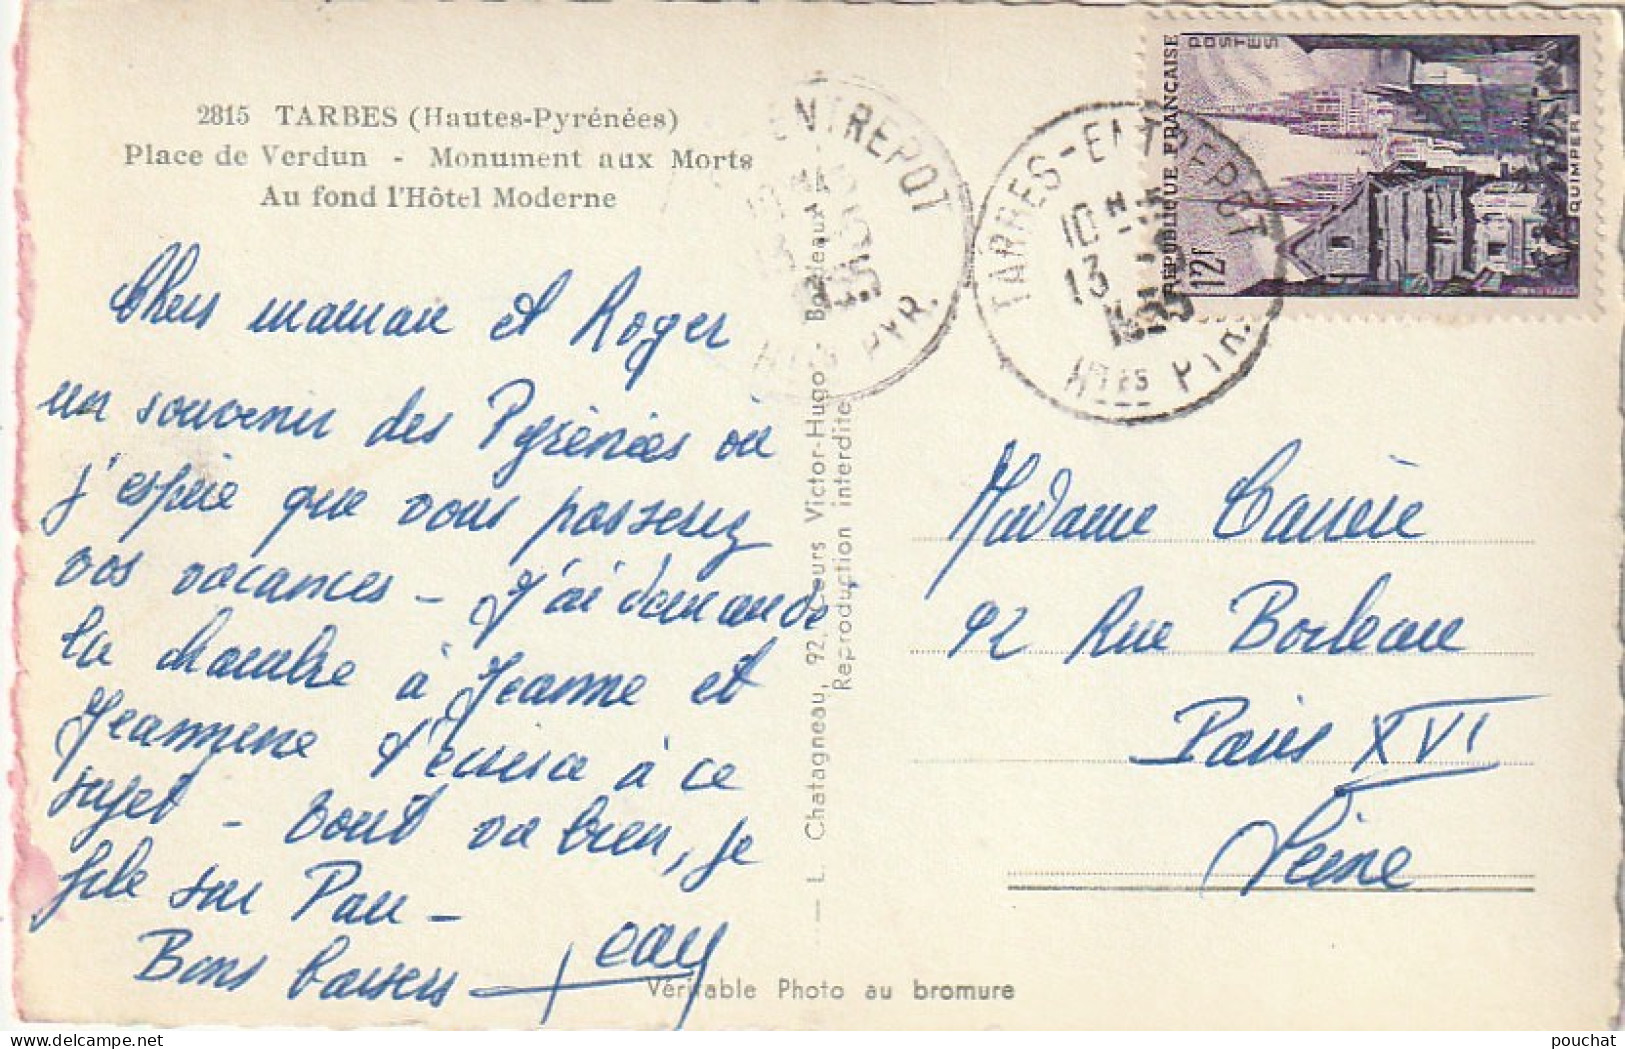 2815 TARBES (Hautes-Pyrénées)
Place de Verdun - Monument aux Morts
Au fond l'Hôtel Moderne
Chers maman et Roger
un souvenir des Pyrénées où
j'espère que vous passerez
vos vacances - J'ai demandé
la chambre à Jeanne et
Jeannene t'écrira à ce
sujet - tout va bien, je
file sur Pau -
Bons baisers Jean
L. Chatagneau, 92, Cours Victor-Hugo Bordeaux
Reproduction interdite
Véritable Photo au bromure
ENTREPOT
PYR.
TARBES-ENTREPOT
10 H
13
1955
HTES PYR.
RÉPUBLIQUE FRANÇAISE
POSTES
12F
QUIMPER
Madame Carrère
92 Rue Boileau
Paris XVI
Seine
pouchat